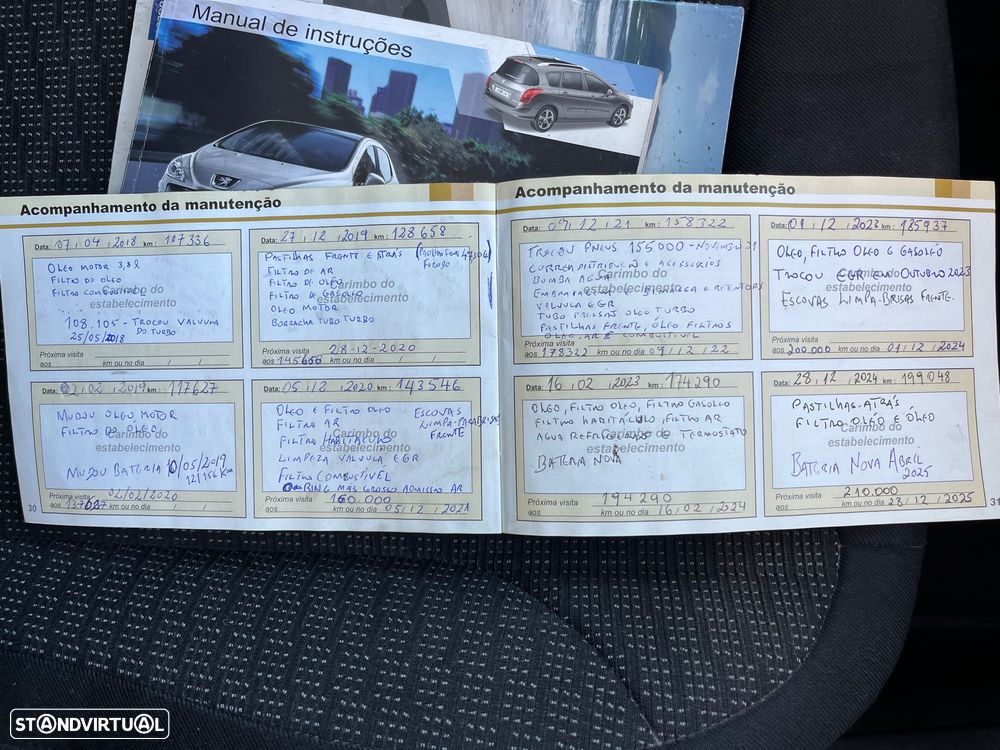 Manual de instruções
Acompanhamento da manutenção
Data: 07 / 04 / 2018 km: 107.336
OLEO MOTOR 3,8 l
FILTRO DO OLEO
FILTRO COMBUSTIVEL
Carimbo do
estabelecimento
108.105 - TROCOU VALVULA
DO TURBO
25/05/2018
Próxima visita
aos km ou no dia / /
Data: 02 / 02 / 2019 km: 117627
MUDOU OLEO MOTOR
FILTRO DO OLEO
Carimbo do
estabelecimento
MUDOU BATERIA 10/05/2019
121156 KM
Próxima visita 02/02/2020
aos 137627 km ou no dia / /
30
Data: 27 / 12 / 2019 km: 128 658
PASTILHAS FRENTE E ATRÁS
FILTRO DE AR
FILTRO DE OLEO
FILTRO DE GASOLEO
OLEO MOTOR
BORRACHA TUBO TURBO
Carimbo do
estabelecimento
Próxima visita 28-12-2020
aos 145656 km ou no dia / /
Data: 05 / 12 / 2020 km: 143546
OLEO E FILTRO OLEO
FILTRO AR
FILTRO HABITACULO
LIMPEZA VALVULA EGR
FILTRO COMBUSTÍVEL
O-RING MAS GROSSO ADMISSÃO AR
ESCOVAS
LIMPA-PARABRISAS
FRENTE
Carimbo do
estabelecimento
Próxima visita 160.000
aos km ou no dia 05 / 12 / 2021
Acompanhamento da manutenção
Data: 09 / 12 / 21 km: 158322
TROCOU PNEUS 155000 - NOVEMBRO 21
CORREIA DISTRIBUIÇÃO E ACESSORIOS
BOMBA AGUA
EMBRAIAGEM E BIMASSA E RETENTORES
VALVULA EGR
TUBO PRESSÃO OLEO TURBO
PASTILHAS FRENTE, ÓLEO FILTROS
OLEO, AR E COMBUSTIVEL
Carimbo do
estabelecimento
Próxima visita
aos 178322 km ou no dia 09 / 12 / 22
Data: 16 / 02 / 2023 km: 174290
OLEO, FILTRO OLEO, FILTRO GASOLEO
FILTRO HABITÁCULO, FILTRO AR
AGUA REFRIGERAÇÃO E TERMOSTATO
BATERIA NOVA
Carimbo do
estabelecimento
Próxima visita 194290
aos km ou no dia 16 / 02 / 2024
Data: 01 / 12 / 2023 km: 185937
OLEO, FILTRO OLEO E GASOLEO
TROCOU EGR EM OUTUBRO 2023
ESCOVAS LIMPA-BRISAS FRENTE.
Carimbo do
estabelecimento
Próxima visita
aos 200.000 km ou no dia 01 / 12 / 2024
Data: 28 / 12 / 2024 km: 199048
PASTILHAS ATRÁS
FILTRO OLEO E ÓLEO
Carimbo do
estabelecimento
BATERIA NOVA ABRIL
2025
Próxima visita 210.000
aos km ou no dia 28 / 12 / 2025
31
STANDVIRTUAL